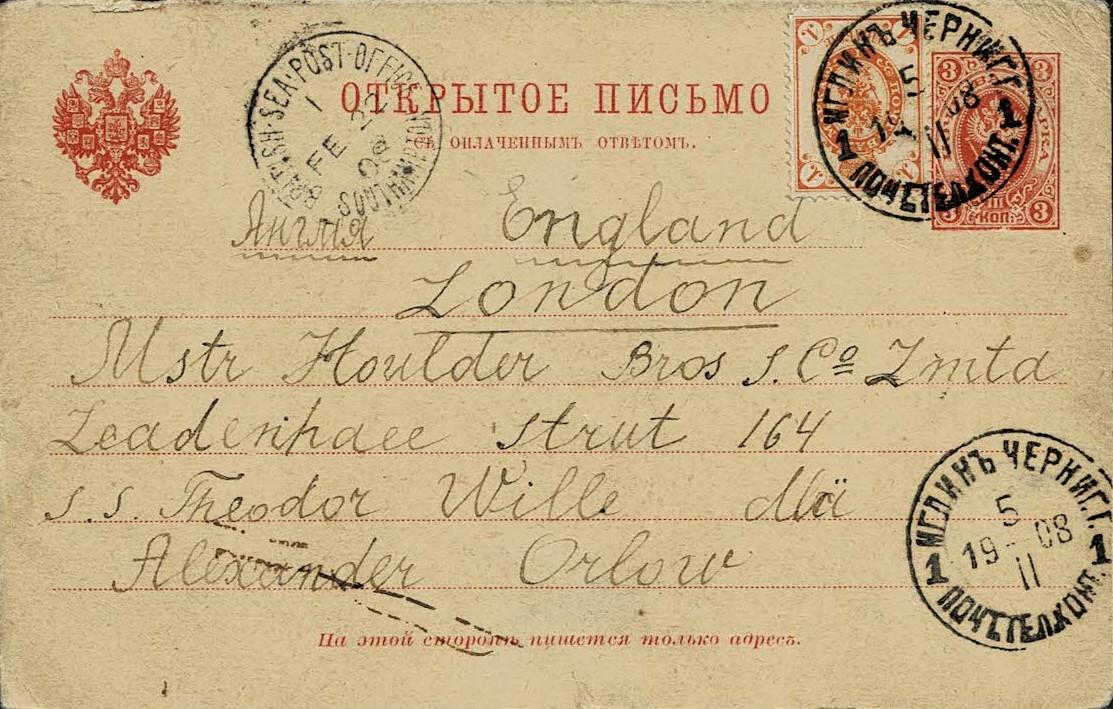 ОТКРЫТОЕ ПИСЬМО
СЪ ОПЛАЧЕННЫМЪ ОТВѢТОМЪ.
BRITISH·SEA·POST·OFFICE·SOUTHAMPTON
1
FE 22
08
МГЛИНЪ ЧЕРНИГ.Г.
5
19 08
II
1 1
ПОЧ.ТЕЛ.КОНТ.
3 3
МАРКА
КОП.
3 3
Англія England
London
Mstr Houlder Bros s. Cº Lmtd
Leadenhaee strut 164
s.s. Theodor Wille
Alexander Orlow
МГЛИНЪ ЧЕРНИГ.Г.
5
19 08
II
1 1
ПОЧ.ТЕЛ.КОНТ.
На этой сторонѣ пишется только адресъ.